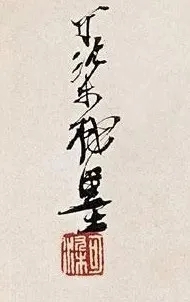 可染戲墨
可染